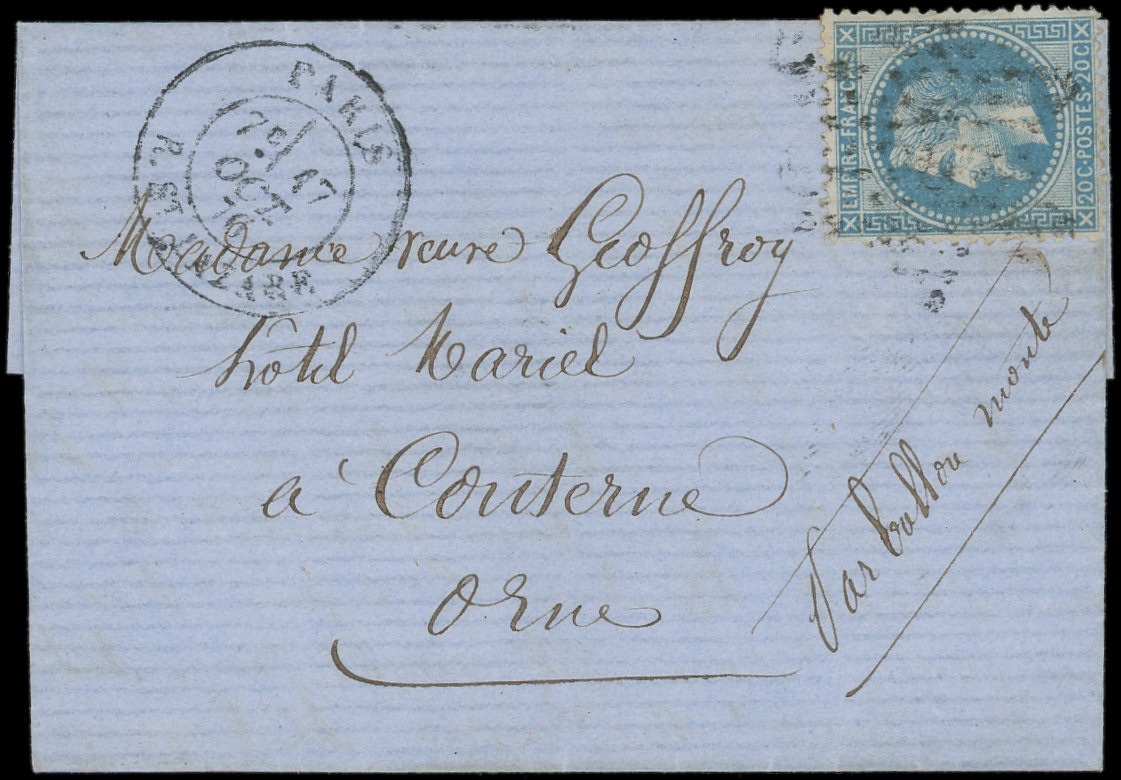 PARIS
R. ST LAZARE
7E/ 17
OCT
70
EMPIRE FRANÇAIS
20C·POSTES·20C
Madame veuve Geoffroy
hôtel Mariel
à Couterne
Orne
Par ballon monté